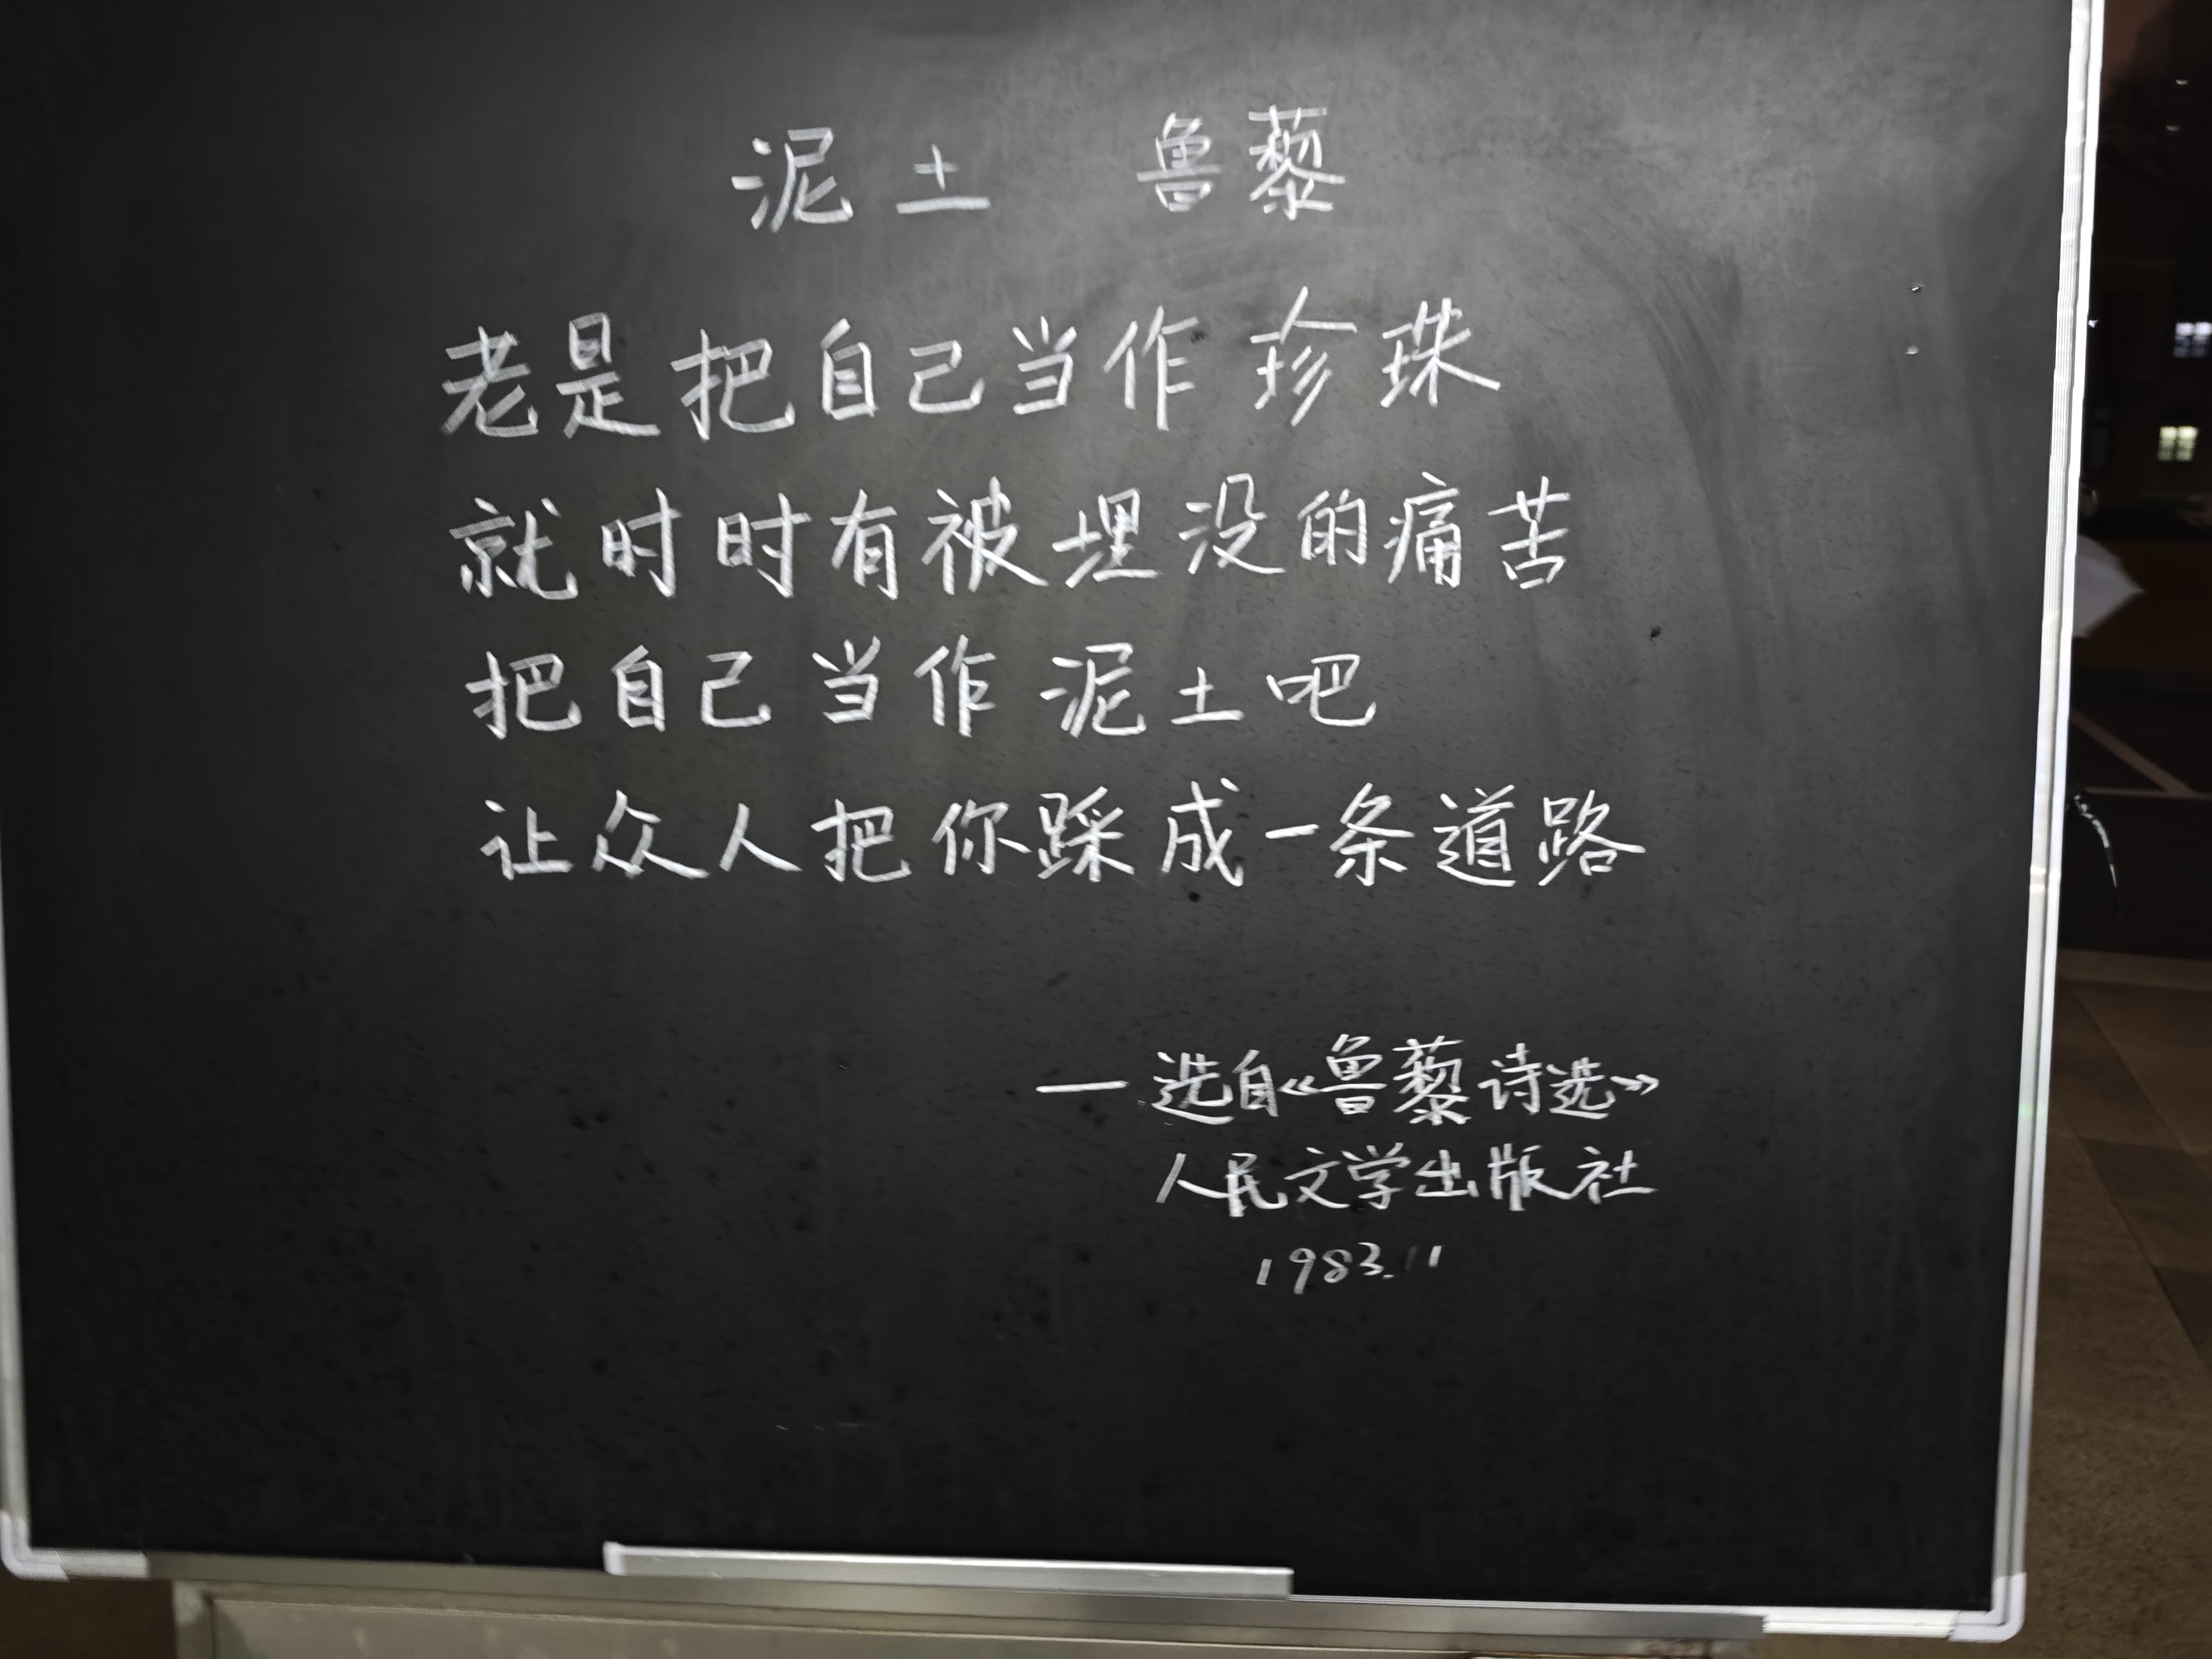 泥土 鲁藜
老是把自己当作珍珠
就时时有被埋没的痛苦
把自己当作泥土吧
让众人把你踩成一条道路
—选自《鲁藜诗选》
人民文学出版社
1983.11